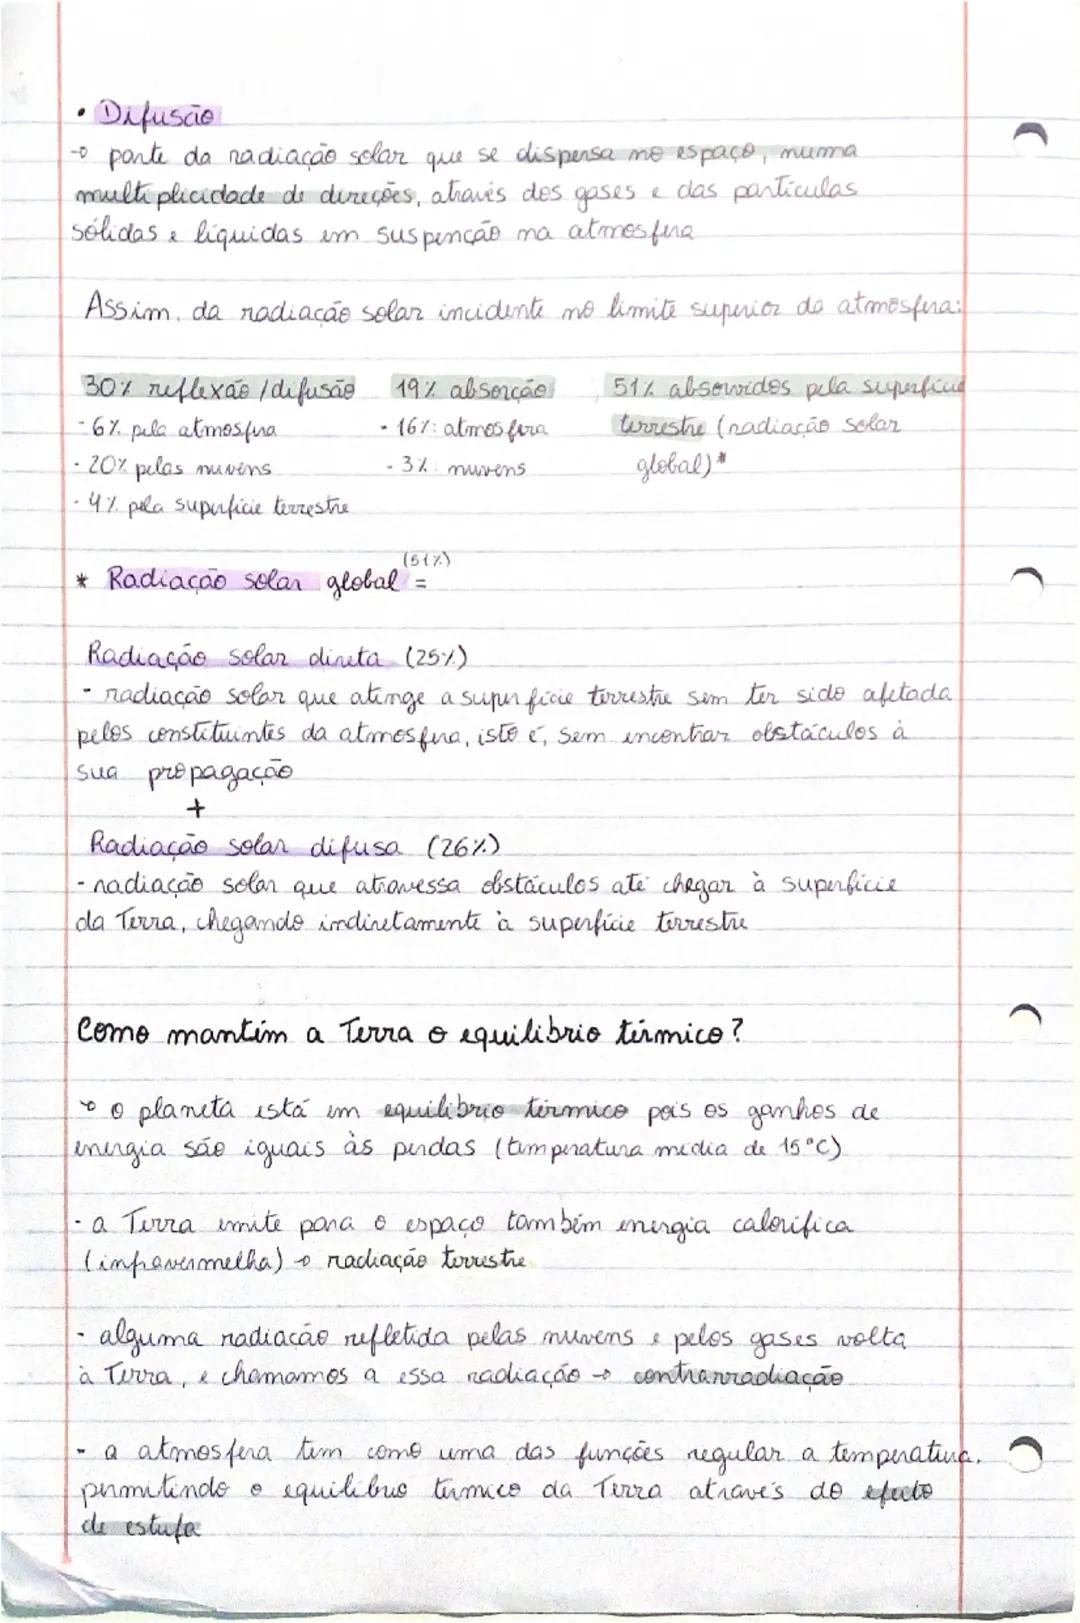 • Difusão
→ parte da radiação solar que se dispersa no espaço, numa
multiplicidade de direções, através dos gases e das partículas
sólidas e líquidas em suspenção na atmosfera
Assim, da radiação solar incidente no limite superior da atmosfera:
30% reflexão / difusão
- 6% pela atmosfera
- 20% pelas nuvens
- 4% pela superfície terrestre
19% absorção
- 16%: atmosfera
- 3%: nuvens
51% absorvidos pela superfície
terrestre (radiação solar
global)*
(51%)
* Radiação solar global =
Radiação solar direta (25%)
- radiação solar que atinge a superfície terrestre sem ter sido afetada
pelos constituintes da atmosfera, isto é, sem encontrar obstáculos à
sua propagação
+
Radiação solar difusa (26%)
- radiação solar que atravessa obstáculos até chegar à superfície
da Terra, chegando indiretamente à superfície terrestre
Como mantém a Terra o equilíbrio térmico?
→ o planeta está em equilíbrio térmico pois os ganhos de
energia são iguais às perdas (temperatura média de 15°C)
- a Terra emite para o espaço também energia calorífica
(infravermelha) → radiação terrestre
- alguma radiação refletida pelas nuvens e pelos gases volta
à Terra, e chamamos a essa radiação → contrarradiação
- a atmosfera tem como uma das funções regular a temperatura,
permitindo o equilíbrio térmico da Terra através do efeito
de estufa